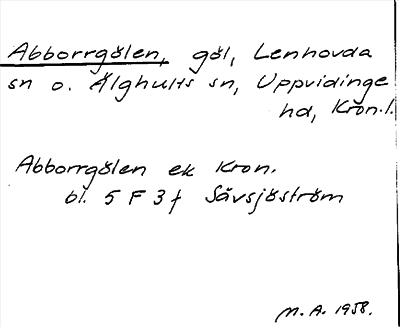 Abborrgölen, göl, Lenhovda
sn o. Älghults sn, Uppvidinge
hd, Kron.l.
Abborrgölen ek Kron.
bl. 5 F 3f Sävsjöström
M. A. 1958.